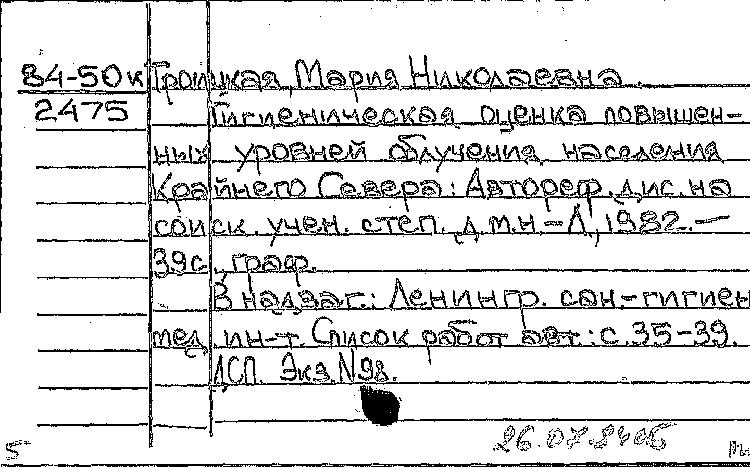 84-50к Троицкая, Мария Николаевна.
2475 Гигиеническая оценка повышен-
ных уровней облучения населения
Крайнего Севера: Автореф. дис. на
соиск. учен. степ. д.м.н – Л., 1982. –
39с., граф.
В надзаг.: Ленингр. сан.-гигиен
мед. ин-т. Список работ авт.: с.35-39.
ДСП. Экз. N98.
26.07.84
5